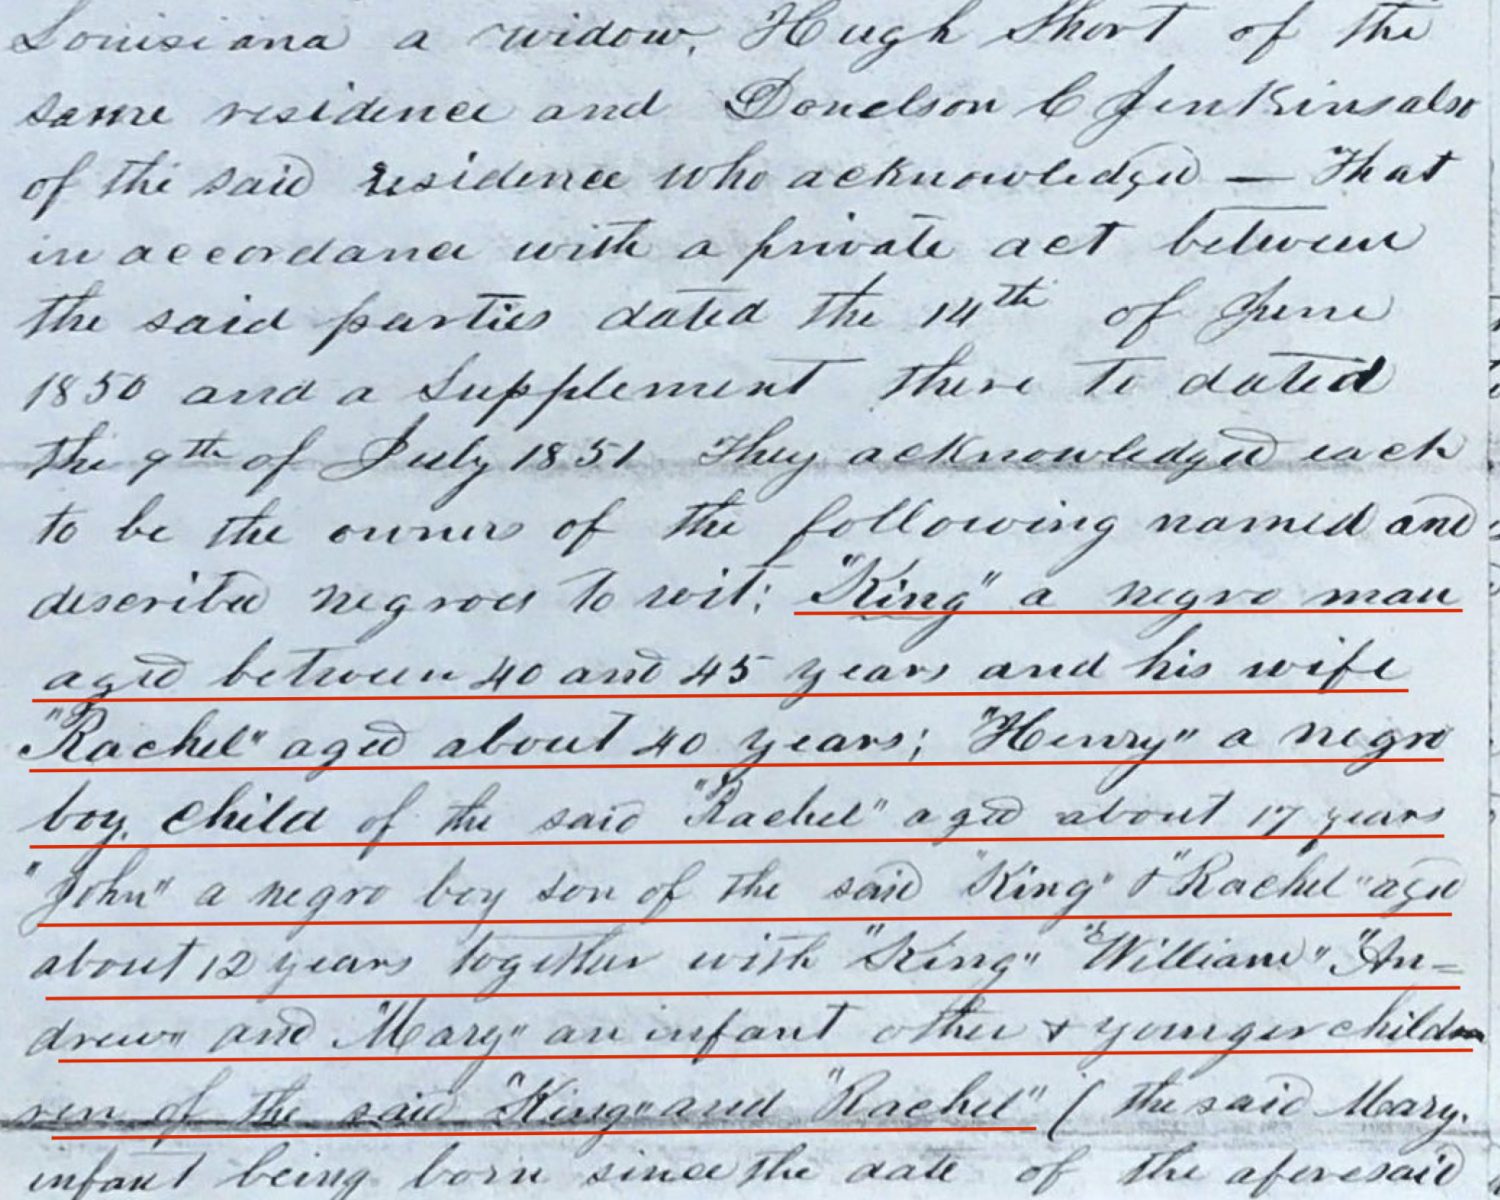 Louisiana a widow, Hugh Short of the
same residence and Donelson C Jenkins also
of the said residence who acknowledged — That
in accordance with a private act between
the said parties dated the 14th of June
1850 and a Supplement there to dated
the 9th of July 1851 They acknowledged each
to be the owners of the following named and
described negroes to wit: "King" a negro man
aged between 40 and 45 years and his wife
"Rachel" aged about 40 years; "Henry" a negro
boy child of the said "Rachel" aged about 17 years
"John" a negro boy son of the said "King" & "Rachel" aged
about 12 years together with "King" "William" "An=
drew" and "Mary" an infant other & younger child
ren of the said "King" and "Rachel" ( the said Mary.
infant being born since the date of the aforesaid